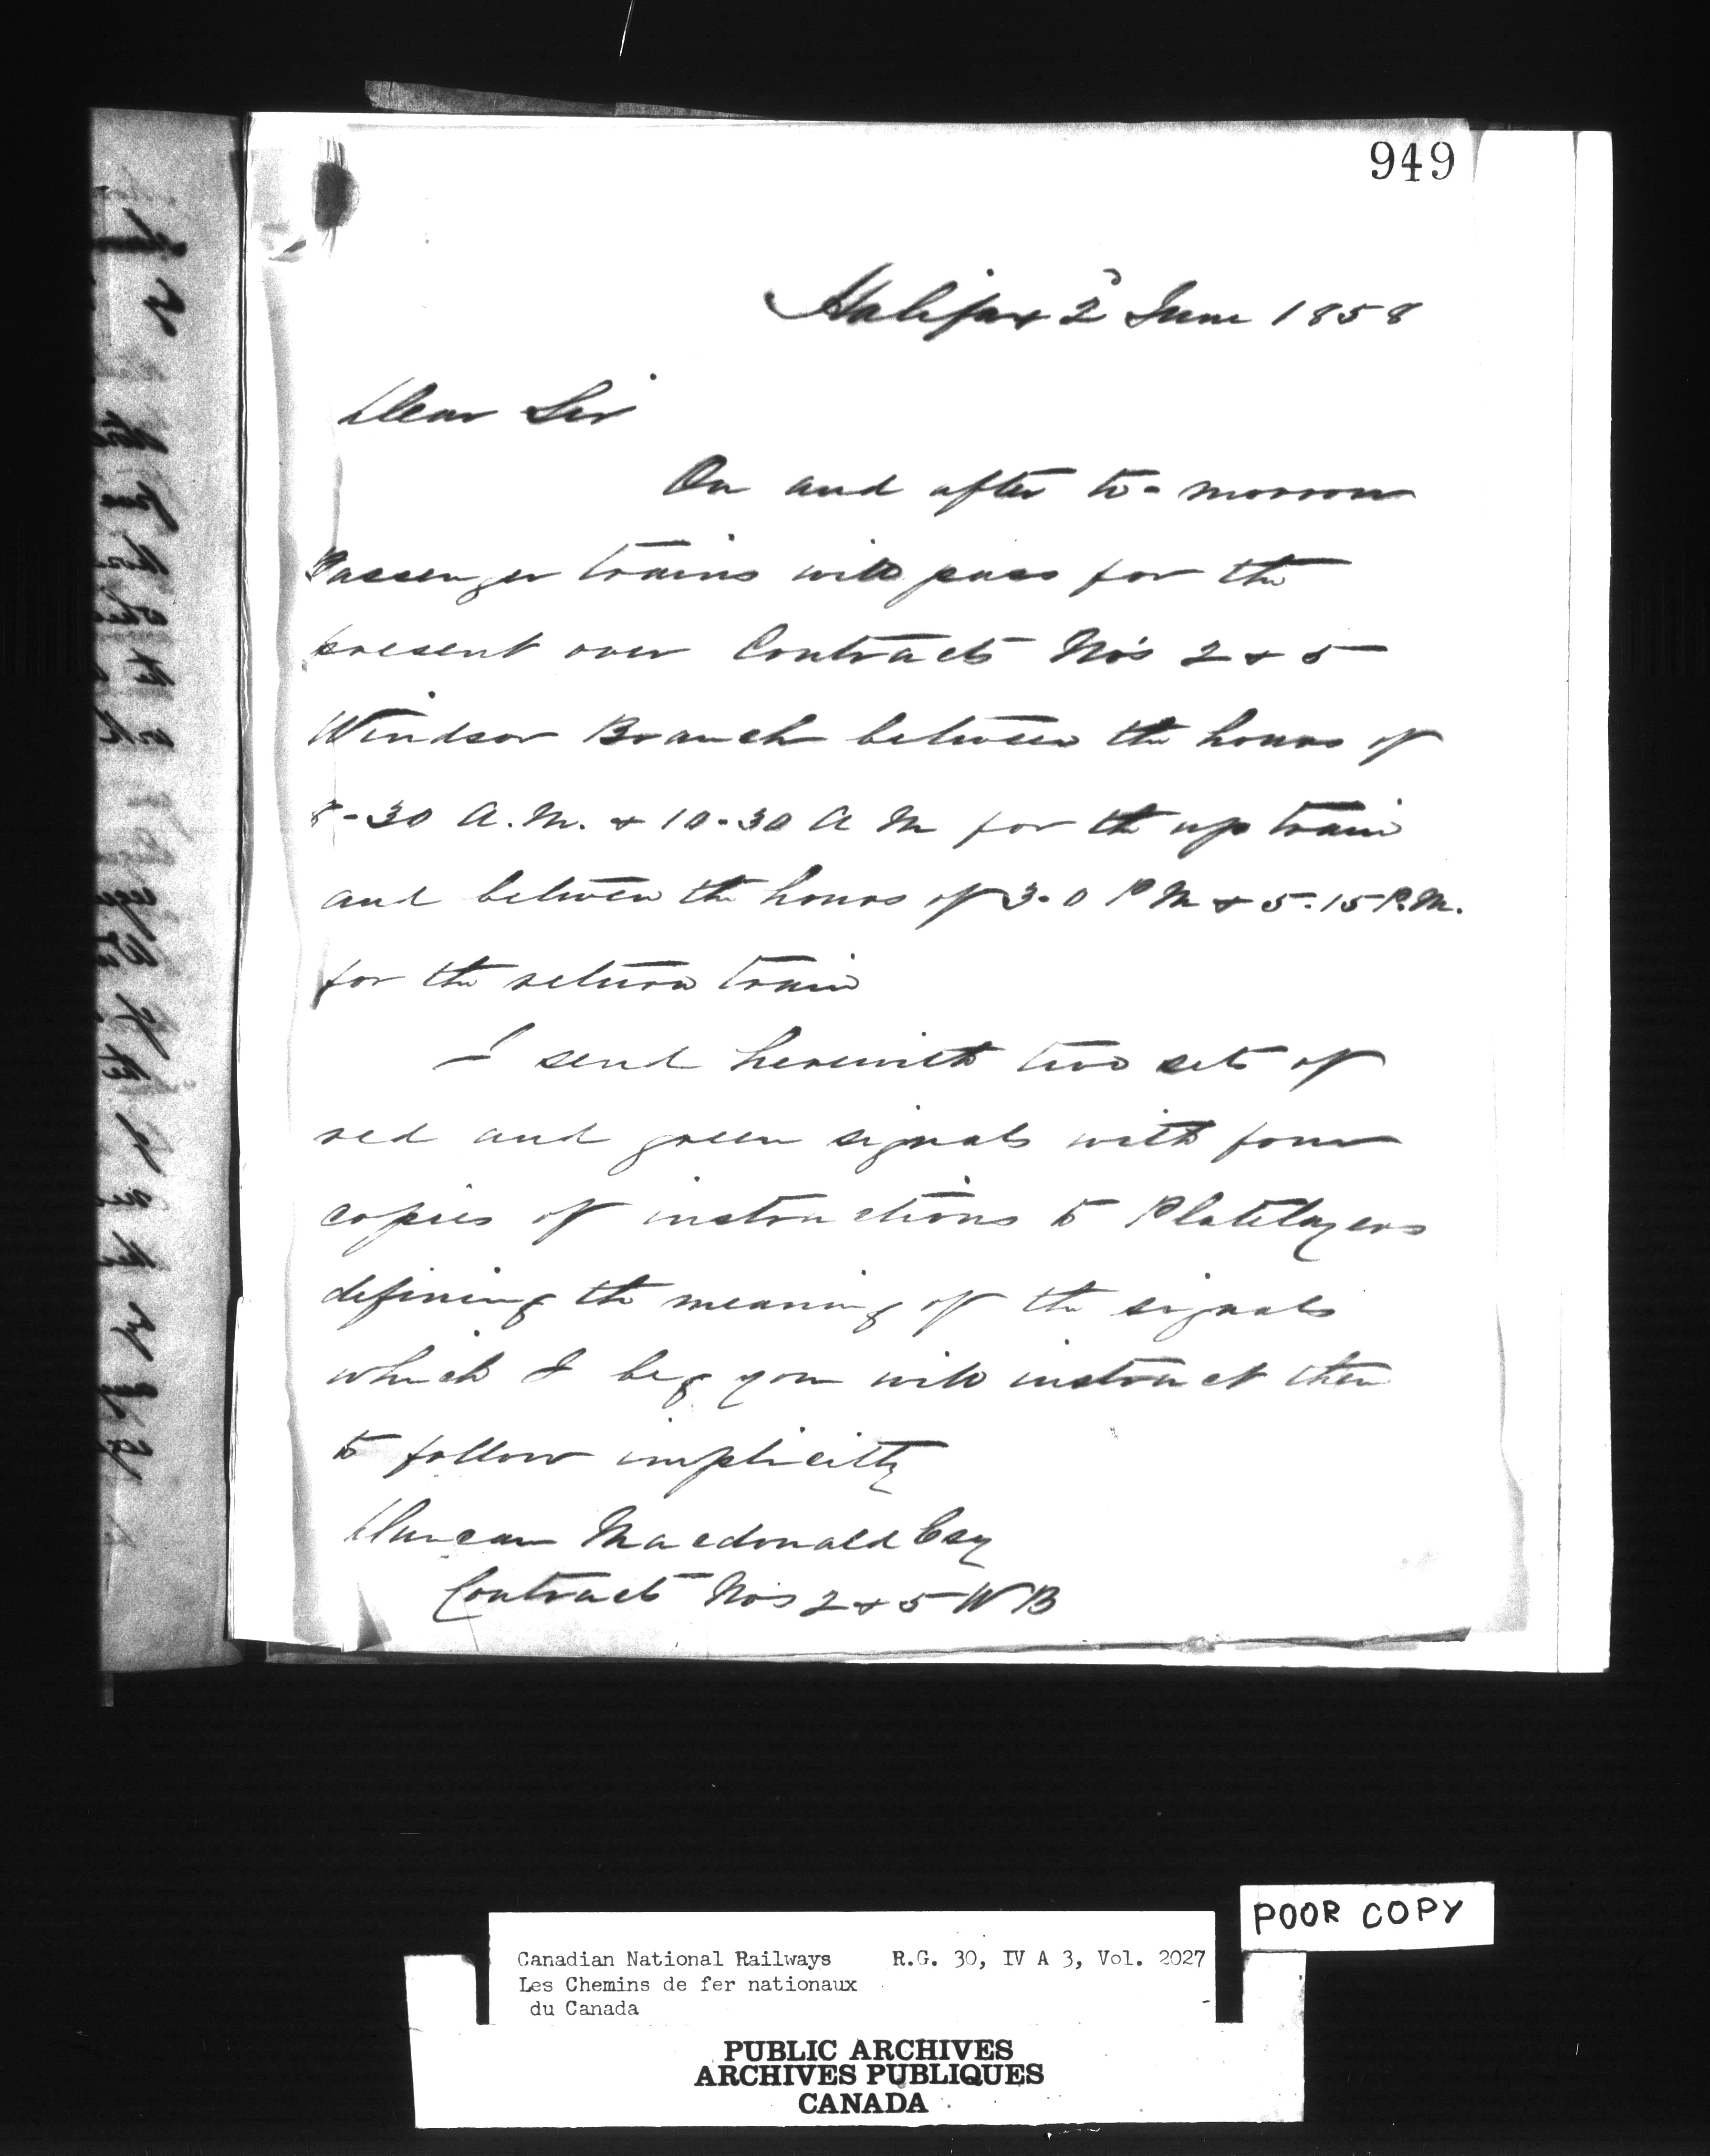 949
Halifax 2d June 1858
Dear Sir
On and after to-morrow
Passenger trains will pass for the
present over Contracts No's 2 & 5
Windsor Branch between the hours of
8-30 A.M. & 10-30 A M for the up train
and between the hours of 3-0 P M & 5-15 P.M.
for the return train
I send herewith two sets of
red and green signals with four
copies of instructions to Platelayers
defining the meaning of the signals
which I beg you will instruct them
to follow implicitly
Duncan Macdonald Esq
Contracts No's 2 & 5 W B
POOR COPY
Canadian National Railways R.G. 30, IV A 3, Vol. 2027
Les Chemins de fer nationaux
du Canada
PUBLIC ARCHIVES
ARCHIVES PUBLIQUES
CANADA